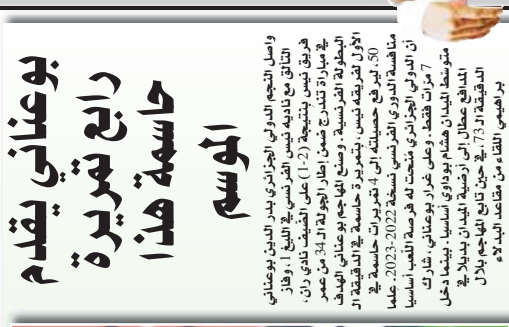 بوعناني يقدم
رابع تمريرة
حاسمة هذا
الموسم
واصل النجم الدولي الجزائري بدر الدين بوعناني
التألق مع ناديه نيس الفرنسي في الليغ 1. وفاز
فريق نيس بنتيجة (2-1) على الضيف نادي ران،
في مباراة تندرج ضمن إطار الجولة الـ 34 من عمر
البطولة الفرنسية. وصنع المهاجم بوعناني الهدف
الأول لفريقه نيس، بتمريرة حاسمة في الدقيقة الـ
50، ليرفع حصيلته إلى 4 تمريرات حاسمة في
منافسة الدوري الفرنسي نسخة 2022-2023. علما
أن الدولي الجزائري منحت له فرصة اللعب أساسيا
7 مرّات فقط. وعلى غرار بوعناني، شارك
متوسّط الميدان هشام بوداوي أساسيا. بينما دخل
المدافع عطال إلى أرضية الميدان بديلا في
الدقيقة الـ 73. في حين تابع المهاجم بلال
براهيمي اللقاء من مقاعد البدلاء